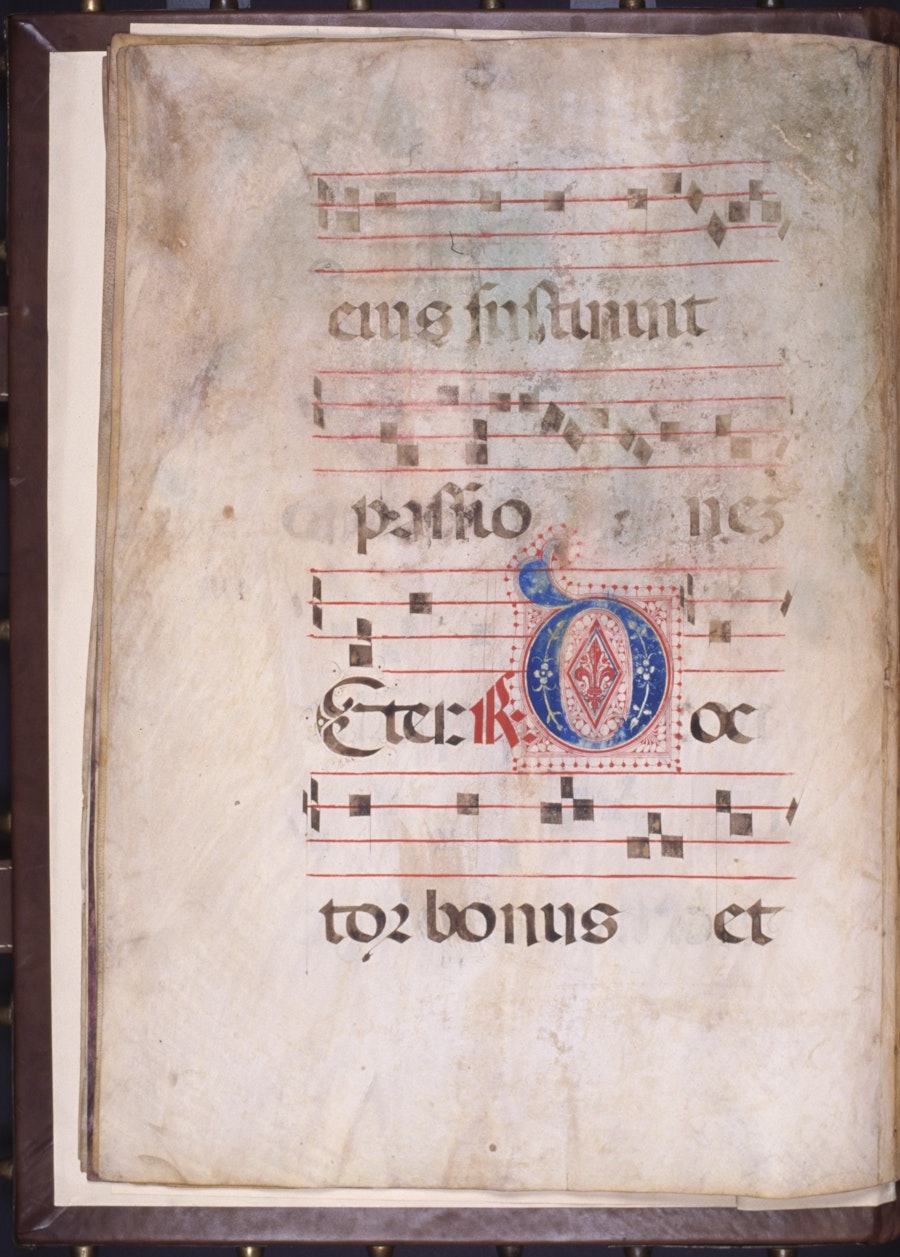 eius sustinuit
passio nez
Eter. R. Doc
tor bonus et